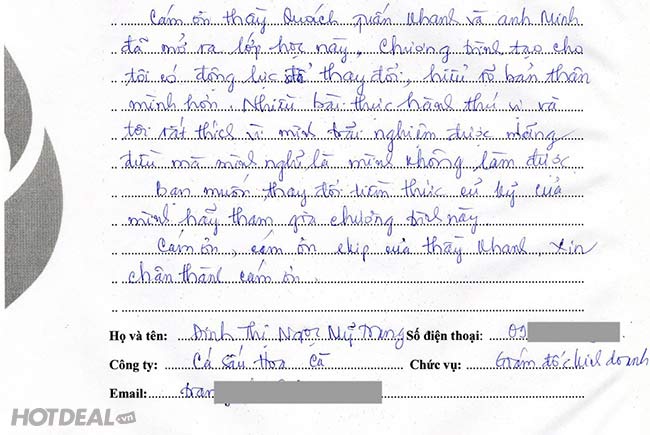 Cám ơn thầy Quách Tuấn Khanh và anh Minh
đã mở ra lớp học này. Chương trình tạo cho
tôi có động lực để thay đổi, hiểu rõ bản thân
mình hơn. Nhiều bài thực hành thú vị và
tôi rất thích vì mình trải nghiệm được những
điều mà mình nghĩ là mình không làm được
Bạn muốn thay đổi tiềm thức cũ kỹ của
mình hãy tham gia chương trình này
Cám ơn, cám ơn ekip của thầy Khanh, xin
chân thành cám ơn.
Họ và tên: Đinh Thị Ngọc Mỹ Trang Số điện thoại: 09
Công ty: Cá sấu Hoa Cà Chức vụ: Giám đốc kinh doanh
Email: trang
HOTDEAL.vn